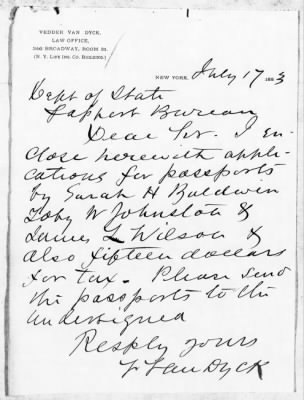 VEDDER VAN DYCK,
LAW OFFICE,
346 BROADWAY, ROOM 31.
(N. Y. LIFE INS. CO. BUILDING.)
NEW YORK, July 17 1883
Dept of State
Passport Bureau
Dear Sir. I en-
close herewith appli-
cations for passports
by Sarah H Baldwin
Toby W Johnston &
James L Wilson &
also fifteen dollars
for tax. Please send
the passports to the
undersigned
Resply yours
V Van Dyck